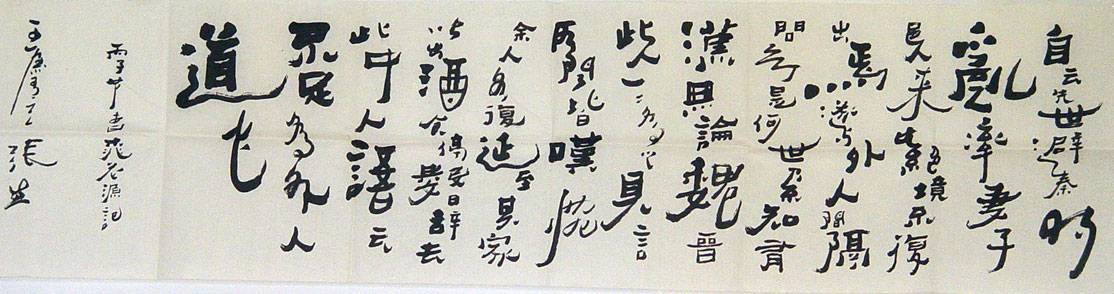 自云先世避秦時
亂率妻子
邑人来此絕境不復
出焉遂與外人間隔
問今是何世乃不知有
漢無論魏晉
此人一一為具言
所聞皆嘆惋
余人各復延至其家
皆出酒食停數日辭去
此中人語云
不足為外人
道也
書桃花源記
張